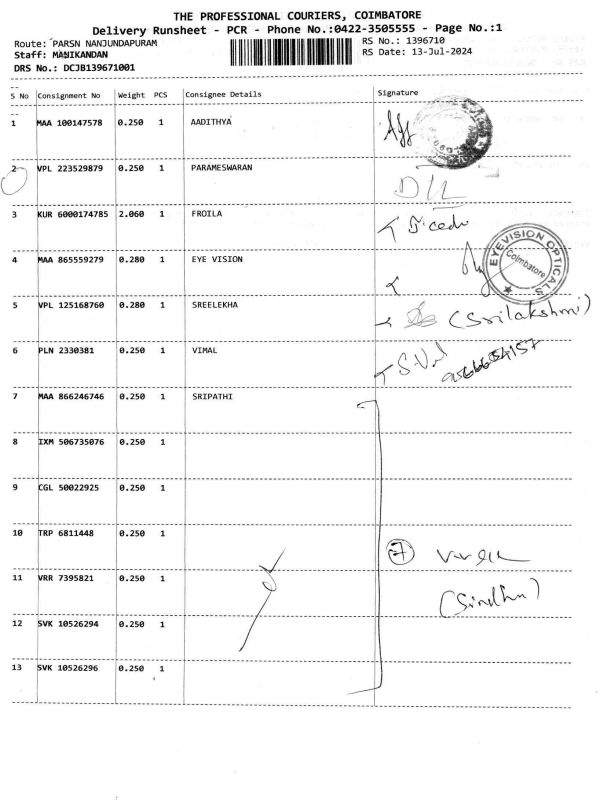 THE PROFESSIONAL COURIERS, COIMBATORE
Delivery Runsheet - PCR - Phone No.:0422-3505555 - Page No.:1
Route: PARSN NANJUNDAPURAM
RS No.: 1396710
Staff: MANIKANDAN
RS Date: 13-Jul-2024
DRS No.: DCJB139671001
S No Consignment No Weight PCS Consignee Details Signature
1 MAA 100147578 0.250 1 AADITHYA
2 VPL 223529879 0.250 1 PARAMESWARAN
3 KUR 6000174785 2.060 1 FROILA
4 MAA 865559279 0.280 1 EYE VISION
EYEVISION OPTICALS
Coimbatore
5 VPL 125168760 0.280 1 SREELEKHA
(Srilakshmi)
6 PLN 2330381 0.250 1 VIMAL
9566654157
7 MAA 866246746 0.250 1 SRIPATHI
8 IXM 506735076 0.250 1
9 CGL 50022925 0.250 1
10 TRP 6811448 0.250 1
7
11 VRR 7395821 0.250 1
(Sindhu)
12 SVK 10526294 0.250 1
13 SVK 10526296 0.250 1